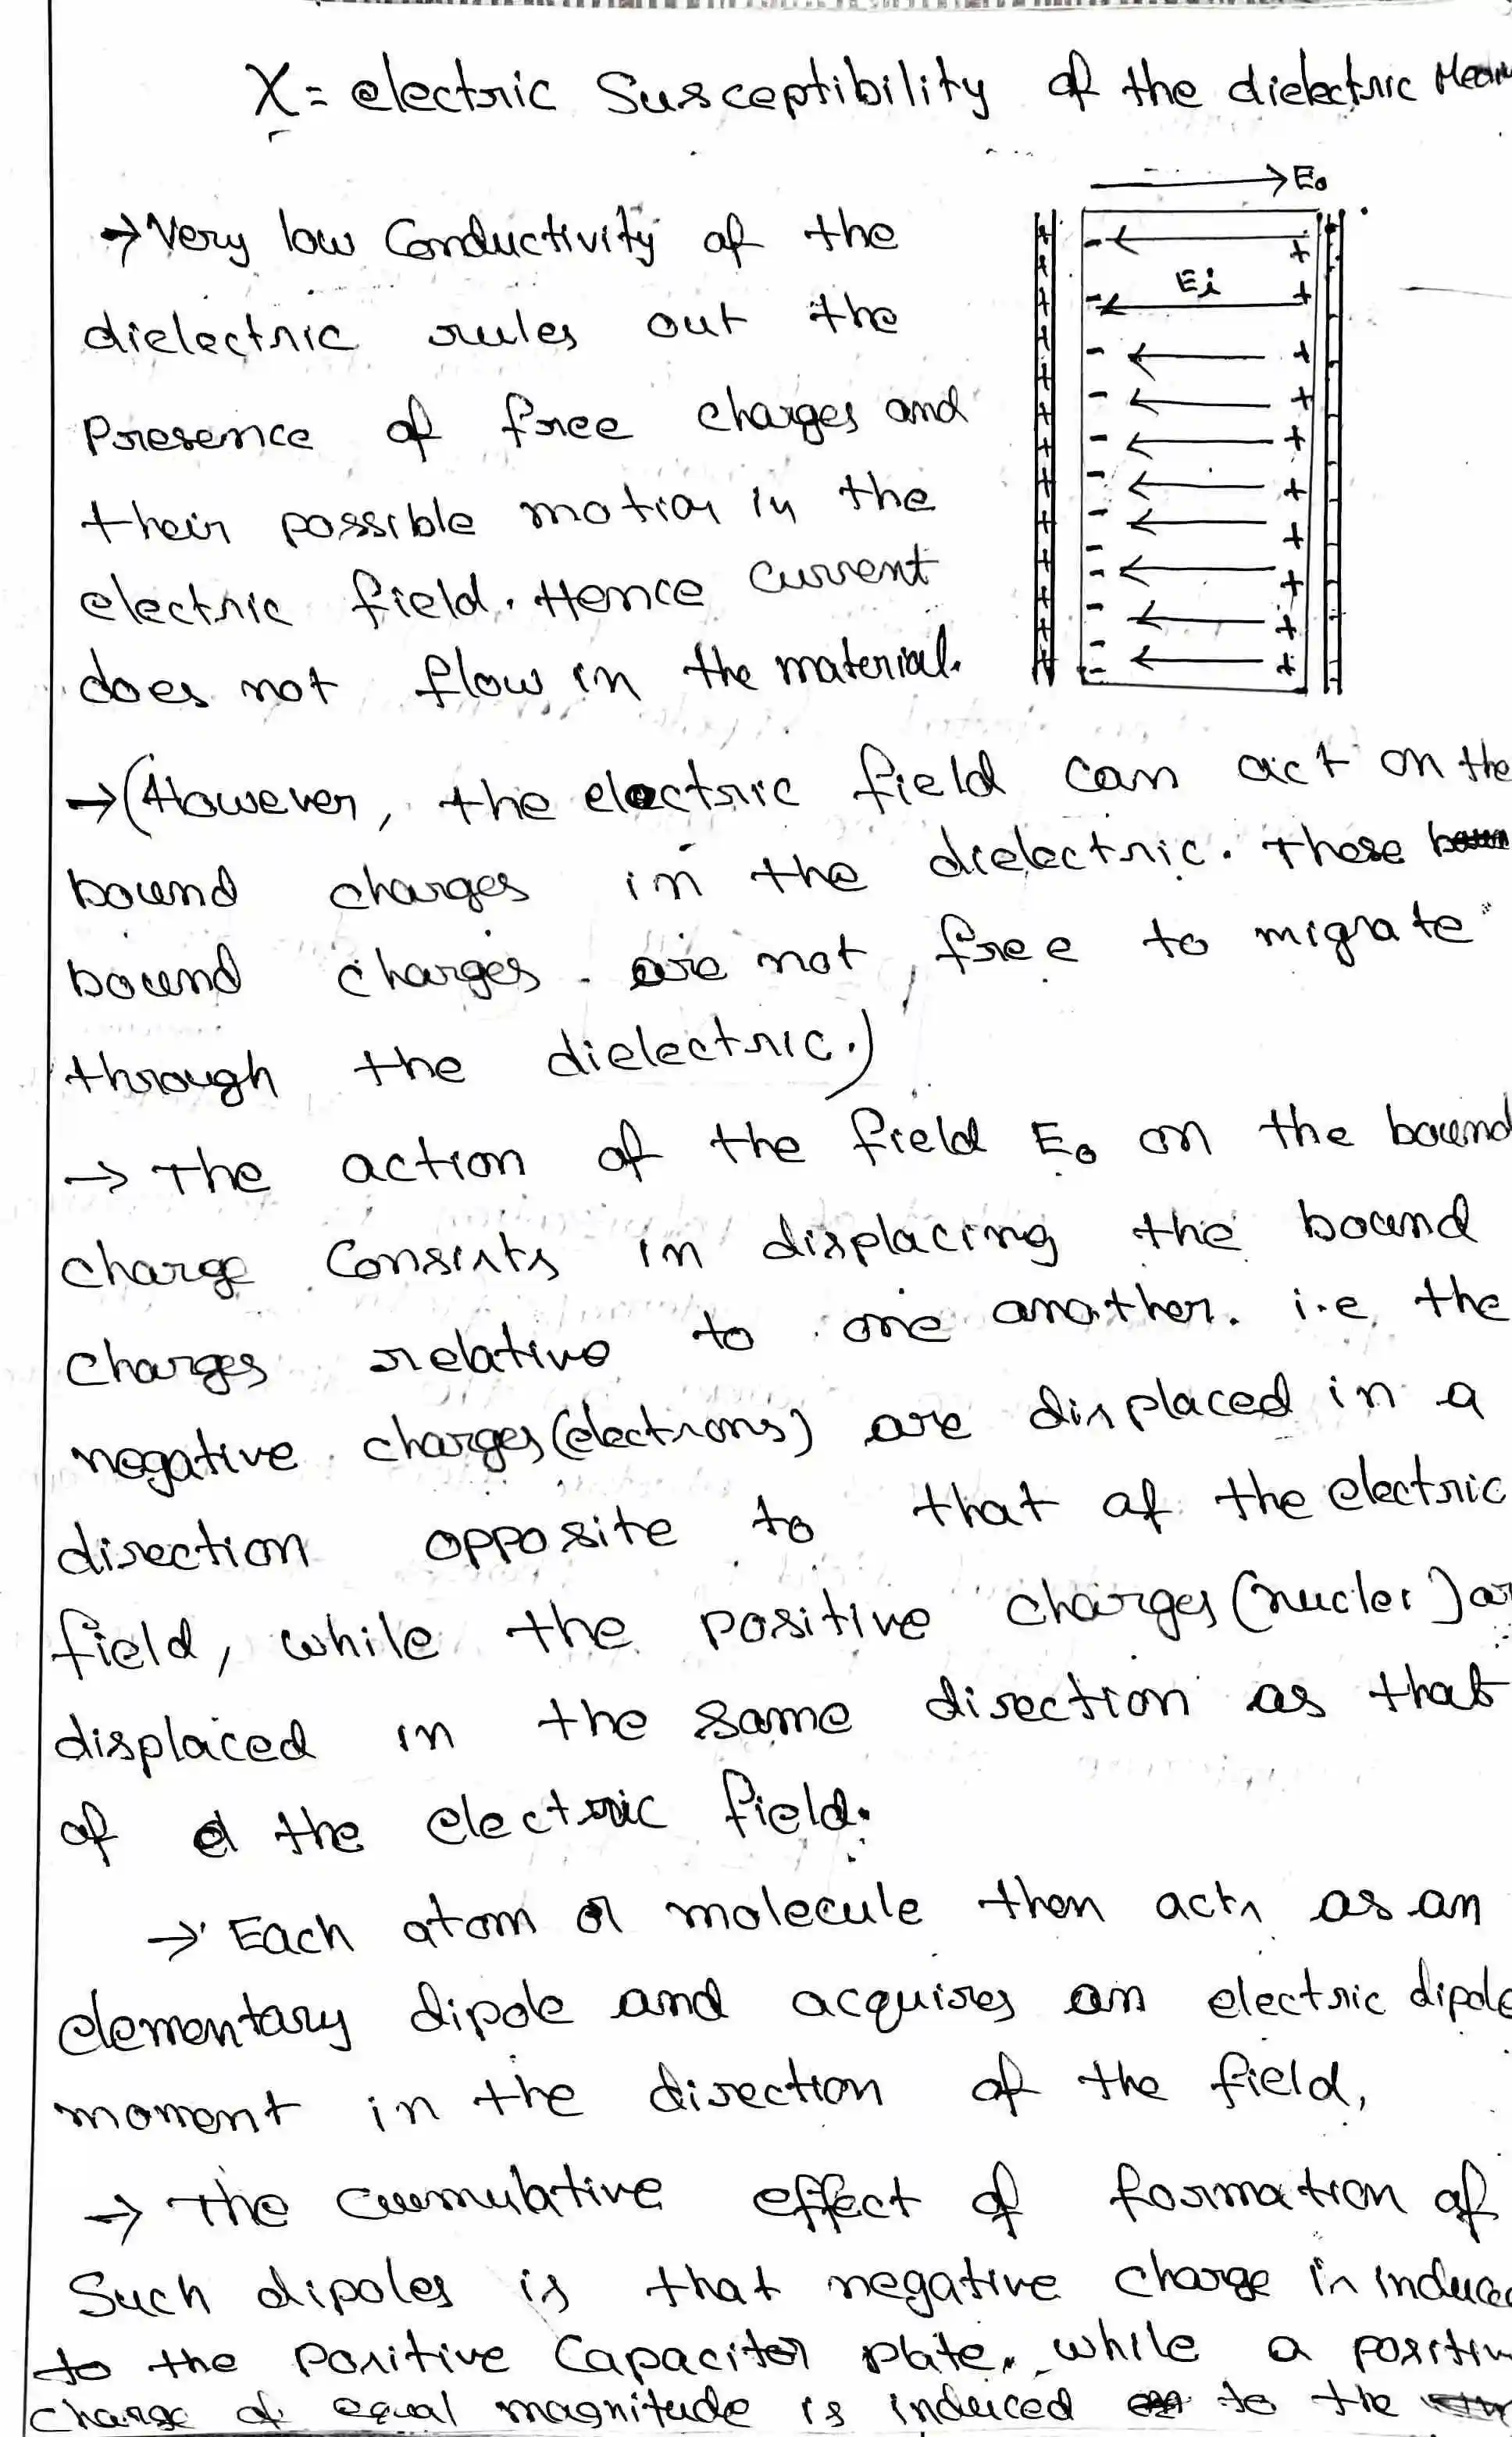 χ = electric Susceptibility of the dielectric
→ E₀
→ Very low Conductivity of the
Ei
dielectric rules out the
Presence of free charges and
their possible motion in the
electric field. Hence current
does not flow in the material.
→ (However, the electric field can act on the
bound charges in the dielectric. These
bound charges are not free to migrate
through the dielectric.)
→ The action of the field E₀ on the bound
charge Consists in displacing the bound
charges relative to one another. i.e. the
negative charges (electrons) are displaced in a
direction opposite to that of the electric
field, while the positive charges (nuclei) ar
displaced in the same direction as that
of the electric field.
→ Each atom or molecule then acts as an
elementary dipole and acquires an electric dipole
moment in the direction of the field,
→ The cumulative effect of formation of
Such dipoles is that negative charge is induced
to the Positive Capacitor plate, while a positiv
charge of equal magnitude is induced to the